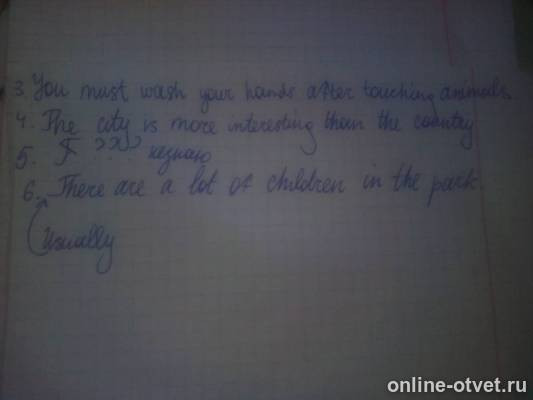 3. You must wash your hands after touching animals
4. The city is more interesting than the country
5. ??? незнаю
6. There are a lot of children in the park.
Usually
online-otvet.ru